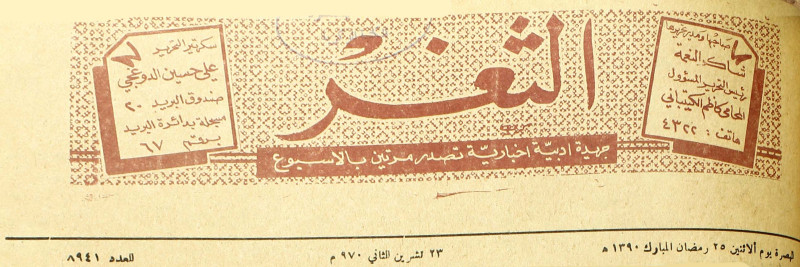 صاحبها ومدير تحريرها
شاكر النعمة
رئيس التحرير المسؤول
المحامي كاظم الكيتباني
هاتف : ٤٣٢٢
الثغر
جريدة ادبية اخبارية تصدر مرتين بالاسبوع
سكرتير التحرير
علي حسين الدوغجي
صندوق البريد ٢٠
مسجلة بدائرة البريد
برقم ٦٧
البصرة يوم ألاثنين ٢٥ رمضان المبارك ١٣٩٠ هـ
٢٣ تشرين الثاني ٩٧٠ م
العدد ٨٩٤١